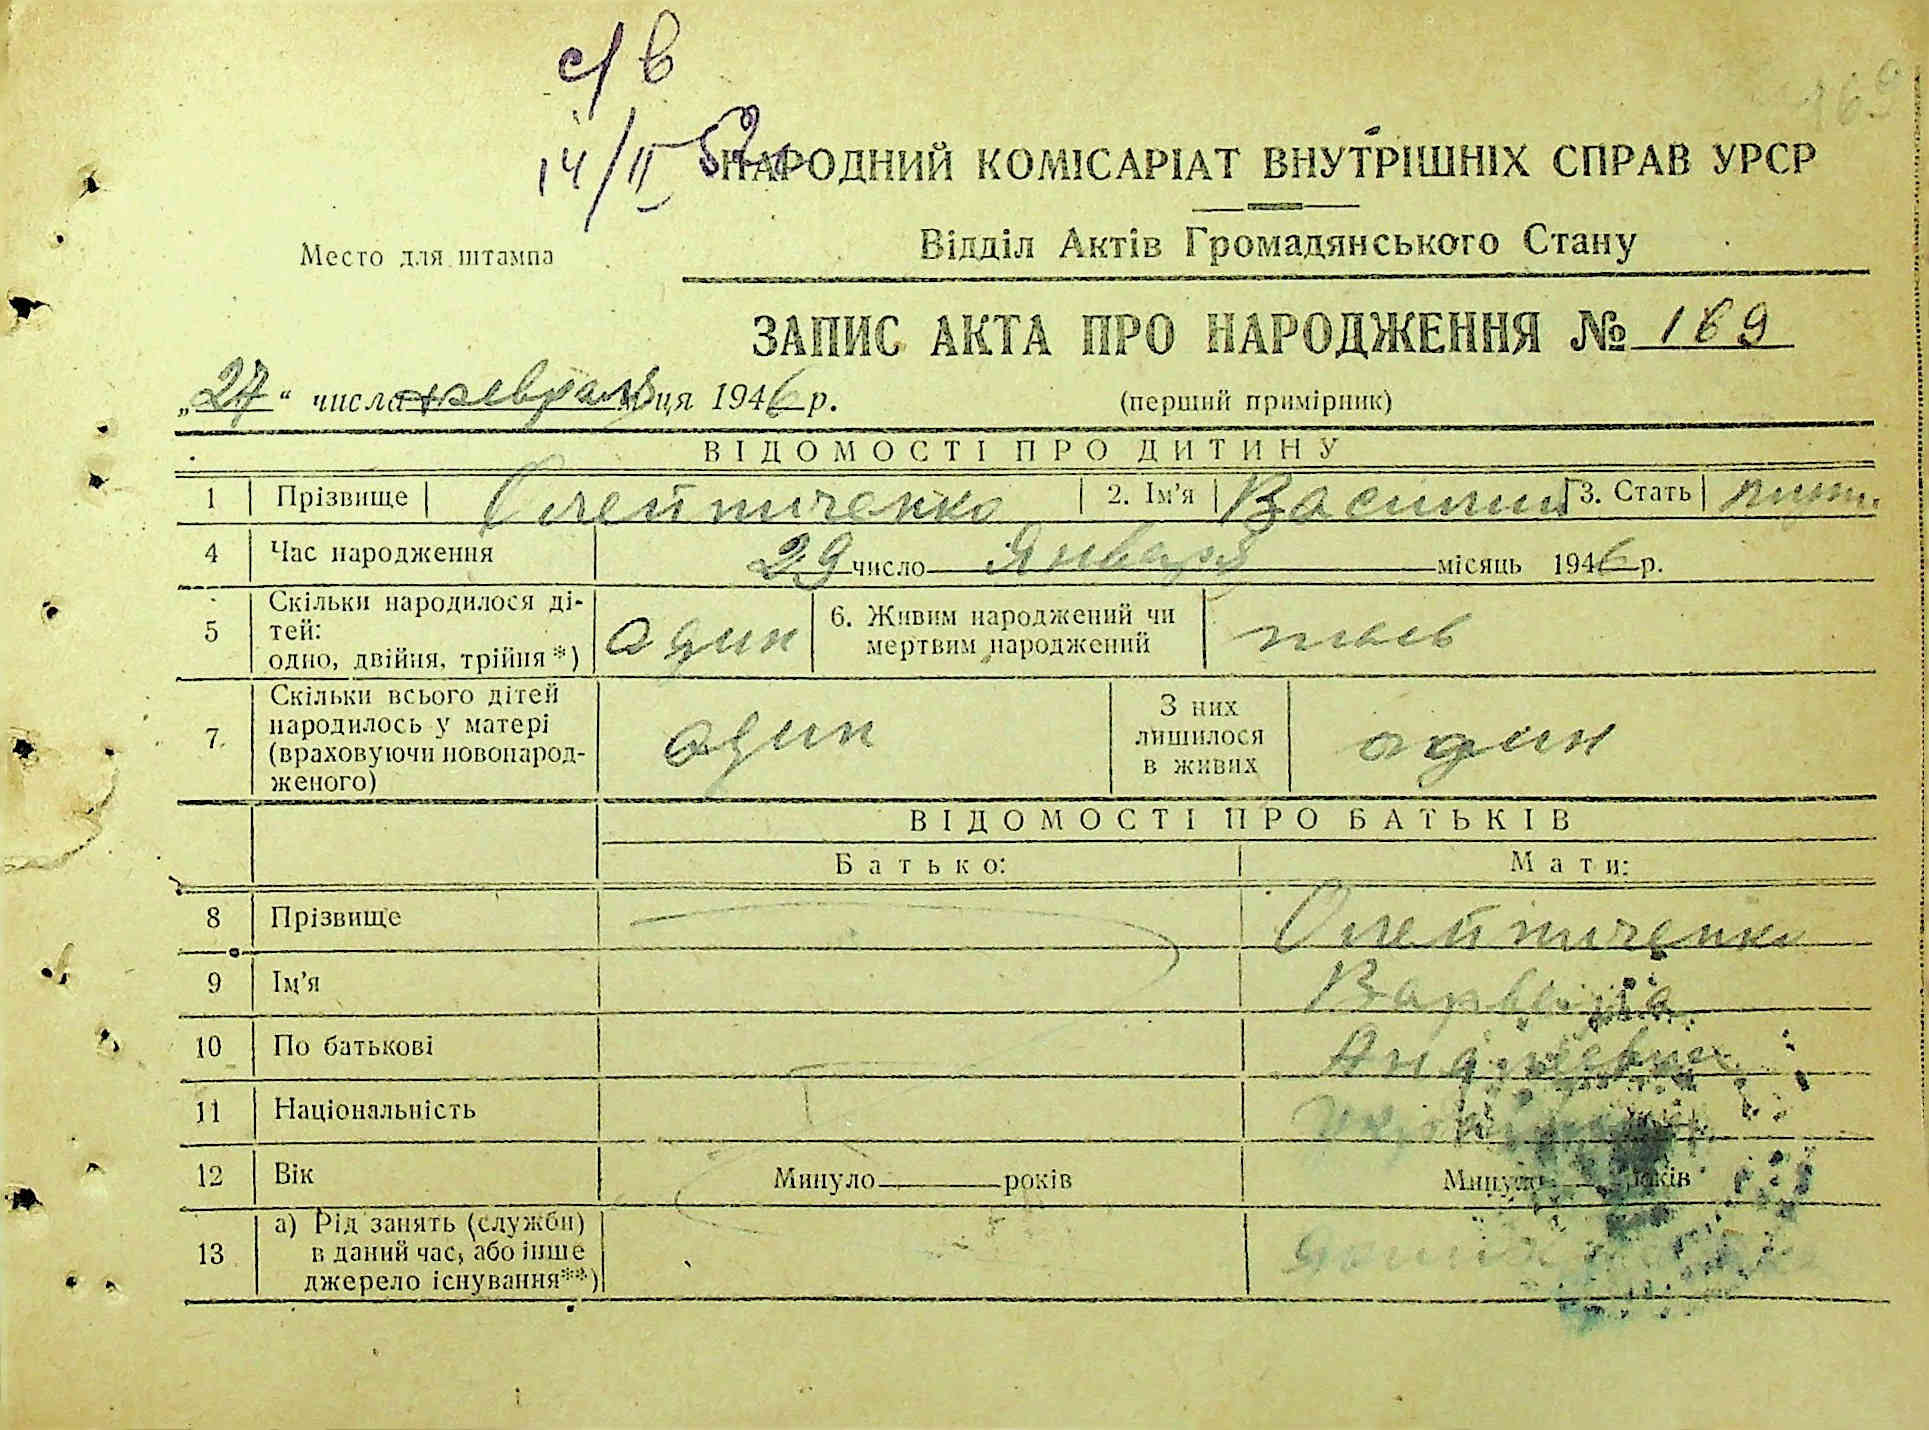 с/в
14/II 52
НАРОДНИЙ КОМІСАРІАТ ВНУТРІШНІХ СПРАВ УРСР
Место для штампа
Відділ Актів Громадянського Стану
ЗАПИС АКТА ПРО НАРОДЖЕННЯ № 169
„27“ числа февраля ця 1946 р. (перший примірник)
ВІДОМОСТІ ПРО ДИТИНУ
1 Прізвище Олейниченко 2. Ім'я Василий 3. Стать муж.
4 Час народження 29 число Января місяць 1946 р.
5 Скільки народилося ді-
тей:
одно, двійня, трійня*) один
6. Живим народжений чи
мертвим народжений
7. Скільки всього дітей
народилось у матері
(враховуючи новонарод-
женого) один
З них
лишилося
в живих один
ВІДОМОСТІ ПРО БАТЬКІВ
Батько: Мати:
8 Прізвище Олейниченко
9 Ім'я Варвара
10 По батькові Андреевна
11 Національність
12 Вік Минуло років Минуло років
13 а) Рід занять (служби)
в даний час, або інше
джерело існування**)